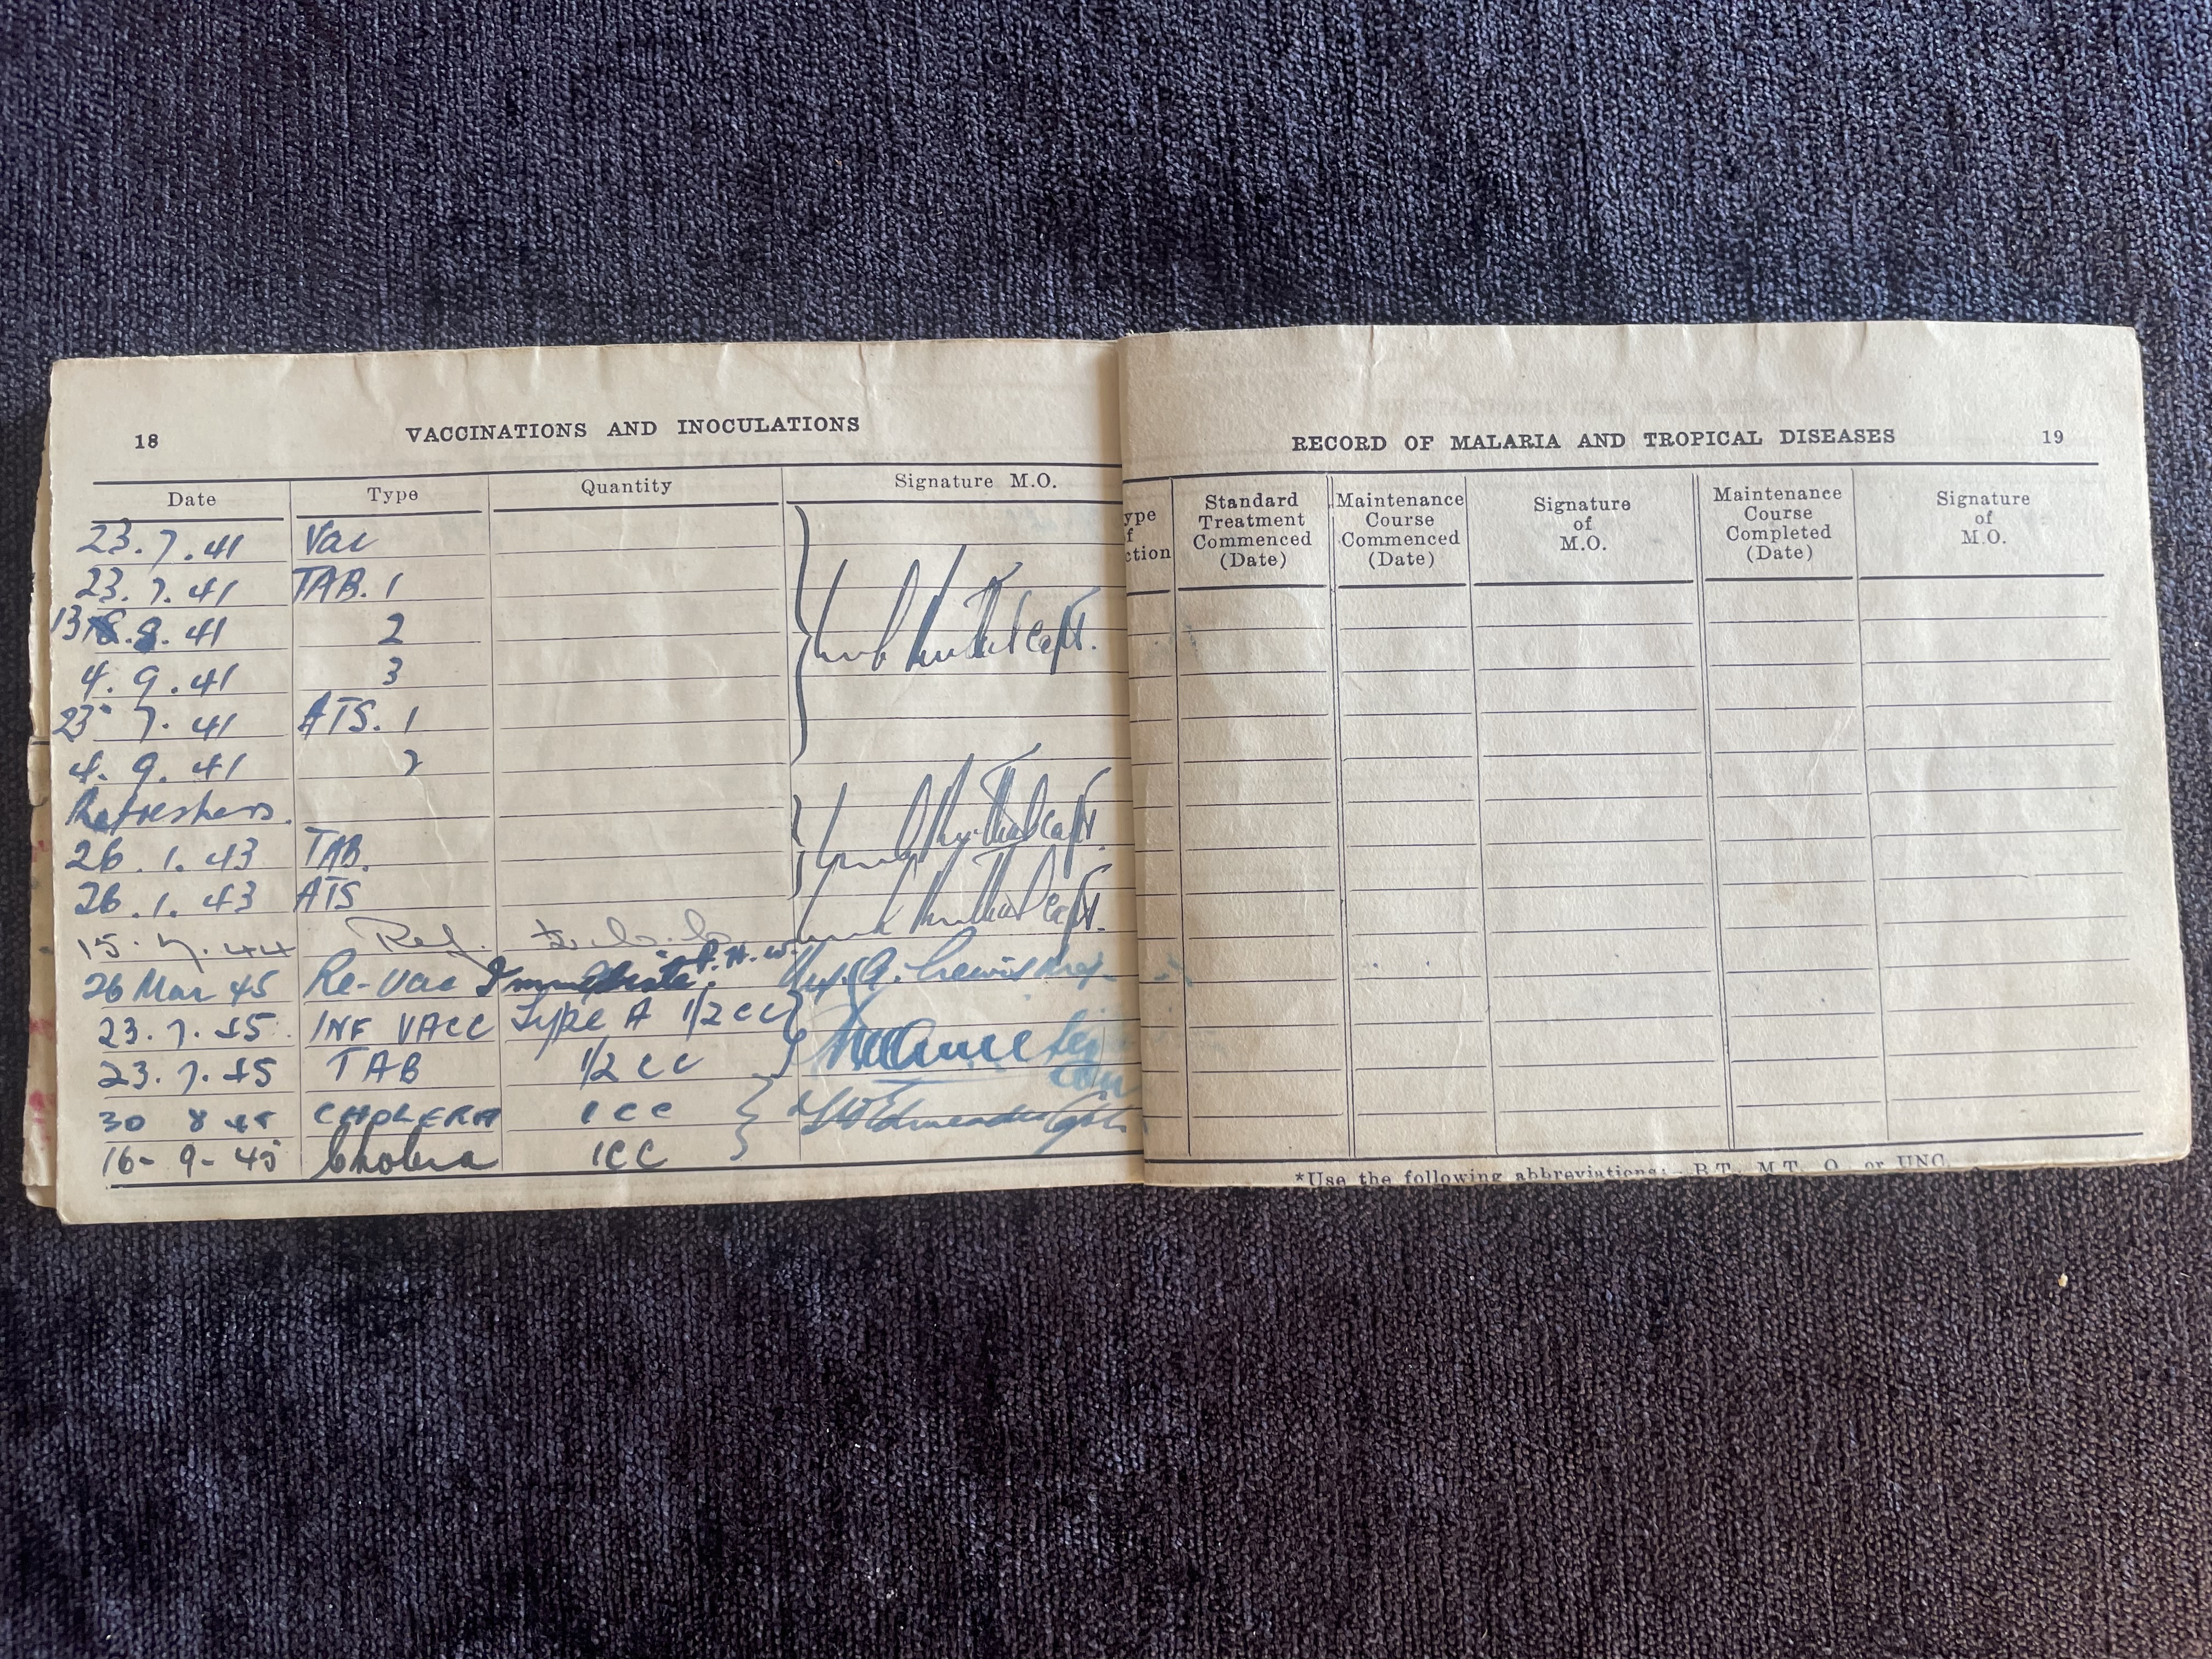 18 VACCINATIONS AND INOCULATIONS
Date Type Quantity Signature M.O.
23.7.41 Vac
23.7.41 TAB. 1
13.8.41 2
4.9.41 3
Capt.
23.7.41 ATS. 1
4.9.41 2
Refreshers.
26.1.43 TAB. Capt.
26.1.43 ATS
15.7.44 Ref. Capt.
26 Mar 45 Re-vac Immediate. P.H.W.
23.7.45 INF VACC Type A 1/2 CC
23.7.45 TAB 1/2 CC
30 8 45 CHOLERA 1CC
16-9-45 Cholera 1CC
RECORD OF MALARIA AND TROPICAL DISEASES 19
ype
f
ction
Standard
Treatment
Commenced
(Date)
Maintenance
Course
Commenced
(Date)
Signature
of
M.O.
Maintenance
Course
Completed
(Date)
Signature
of
M.O.
*Use the following abbreviations:—B.T., M.T., Q. or UNC.